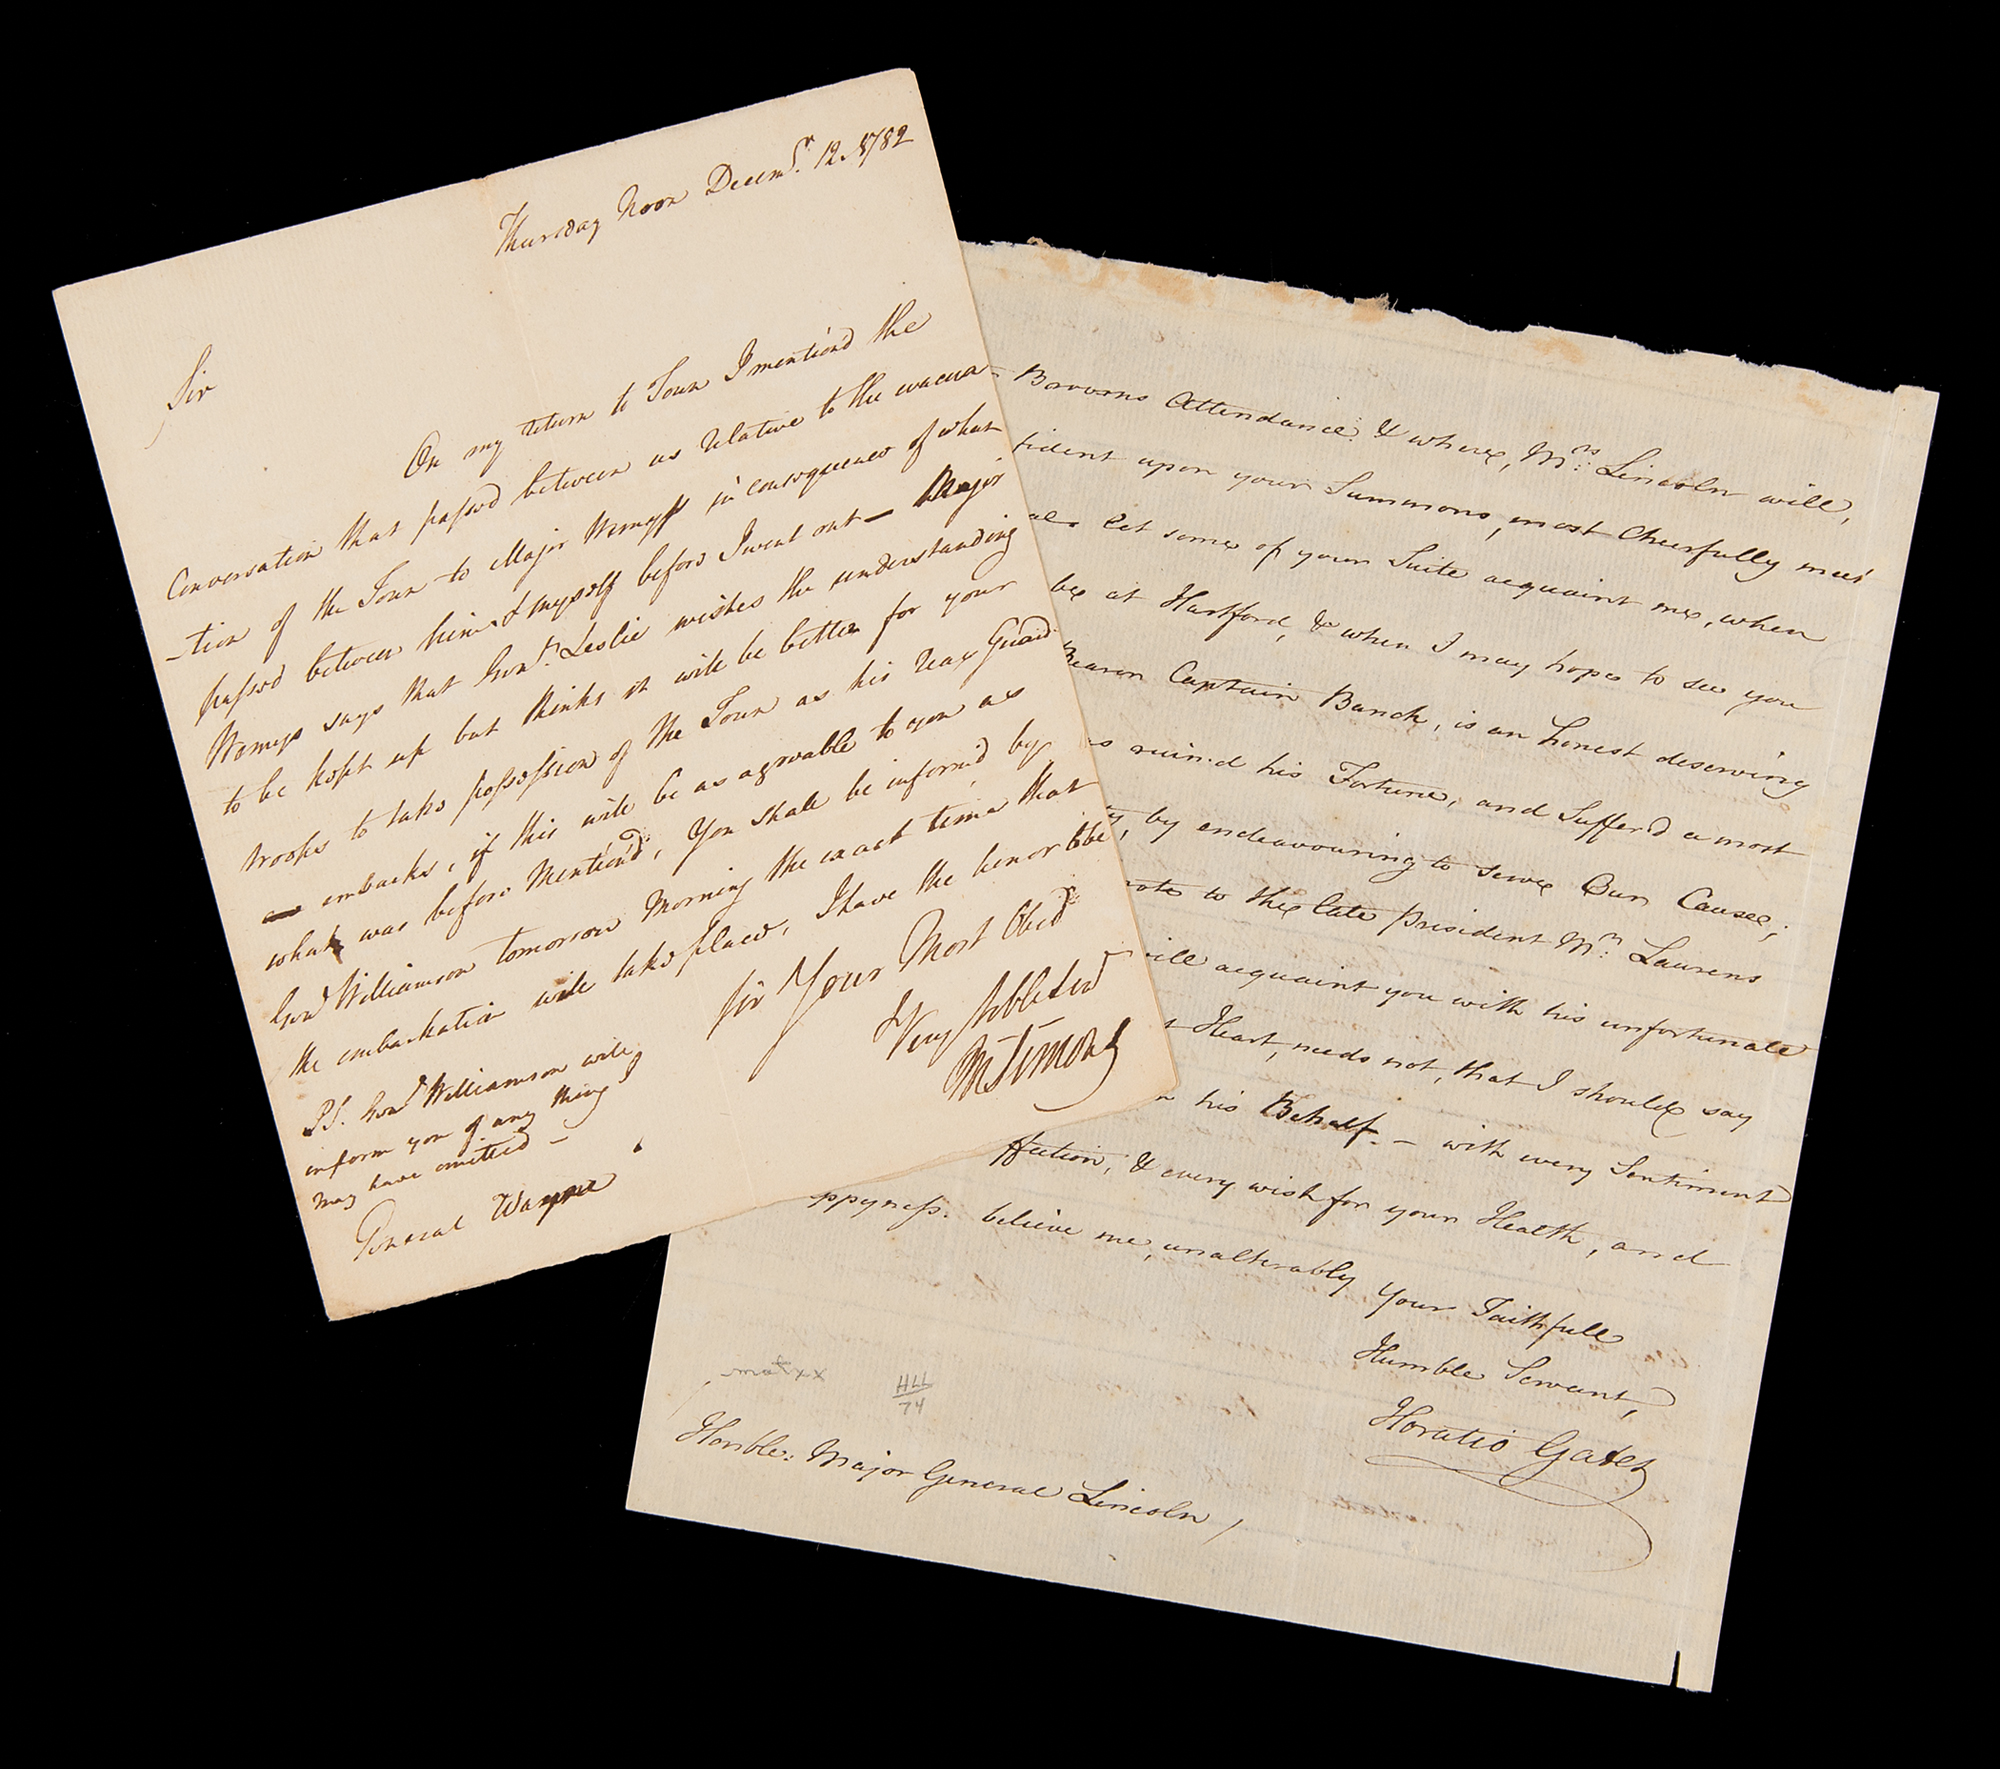 Thursday Noon Decemr. 12. 1782
Sir
On my return to Town I mention'd the
Conversation that passed between us relative to the evacua
-tion of the Town to Major Wemyss in consequence of what
passed between him & myself before I went out — Major
Wemyss says that Genl. Leslie wishes the understanding
to be kept up but thinks it will be better for your
troops to take possession of the Town as his rear Guard
embarks, if this will be as agreable to you as
what was before Mention'd, You shall be inform'd by
Genl Williamson tomorrow Morning the exact time that
the embarkation will take place, I have the honor to be
Sir Your Most Obedt
Very Hble Servt
Ms Simons
PS. Genl Williamson will
inform you of any thing I
may have omitted —
General Wayne
Browns Attendance: & where, Mrs: Lincoln will,
fident upon your Summons, most Cheerfully meet
let some of your Suite acquaint me, when
be at Hartford, & when I may hope to see you
Bearer Captain Bunck, is an honest deserving
ruin'd his Fortune, and Suffer'd a most
by endeavouring to serve Our Cause;
note to the late President Mr: Laurens
will acquaint you with his unfortunate
Heart, needs not, that I should say
his Behalf. — with every Sentiment
ffection, & every wish for your Health, and
ppyness. believe me, unalterably Your Faithfull
Humble Servant,
Horatio Gates
HLL
74
Honble: Major General Lincoln /